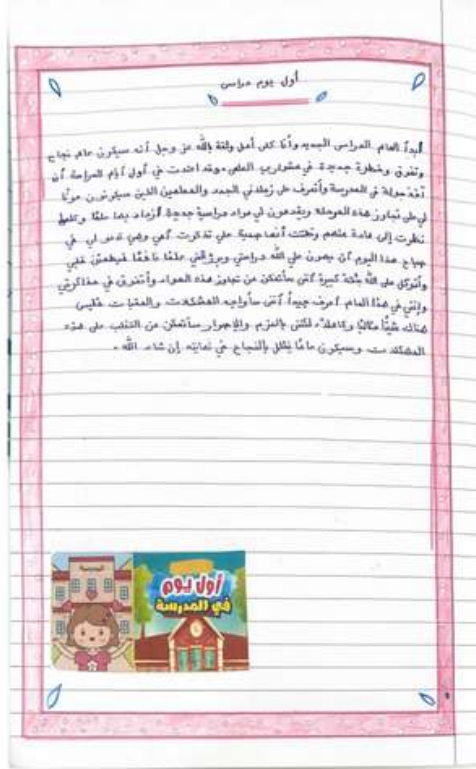 أول يوم دراسي
أبدأ العام الدراسي الجديد وأنا كلي أمل وثقة بالله عز وجل أنه سيكون عام نجاح
وتفوق وخطوة جديدة في مشواري العلمي، وقد اعتدت في أول أيام الدراسة أن
آخذ جولة في المدرسة وأتعرف على زملائي الجدد والمعلمين الذين سيكونون عونًا
لي على تجاوز هذه المرحلة ويقدمون لي مواد دراسية جديدة أزداد بها علمًا
نظرت إلى مادة منهم وظننت أنها صعبة علي تذكرت أمي وهي تدعو لي في
صباح هذا اليوم أن يهون علي الله دراستي ويرزقني علمًا نافعًا فيطمئن قلبي
وأتوكل على الله بثقة كبيرة أنني سأتمكن من تجاوز هذه المواد وأتفوق في مذاكرتي
وإنني في هذا العام أعرف جيداً أنني سأواجه المشكلات والعقبات فليس
هناك شيئًا مثاليًا وكاملاً، لكنني بالعزم والإصرار سأتمكن من التغلب على هذه
المشكلات وسيكون عامًا يكلل بالنجاح في نهايته إن شاء الله .
المدرسة
أول يوم
في المدرسة